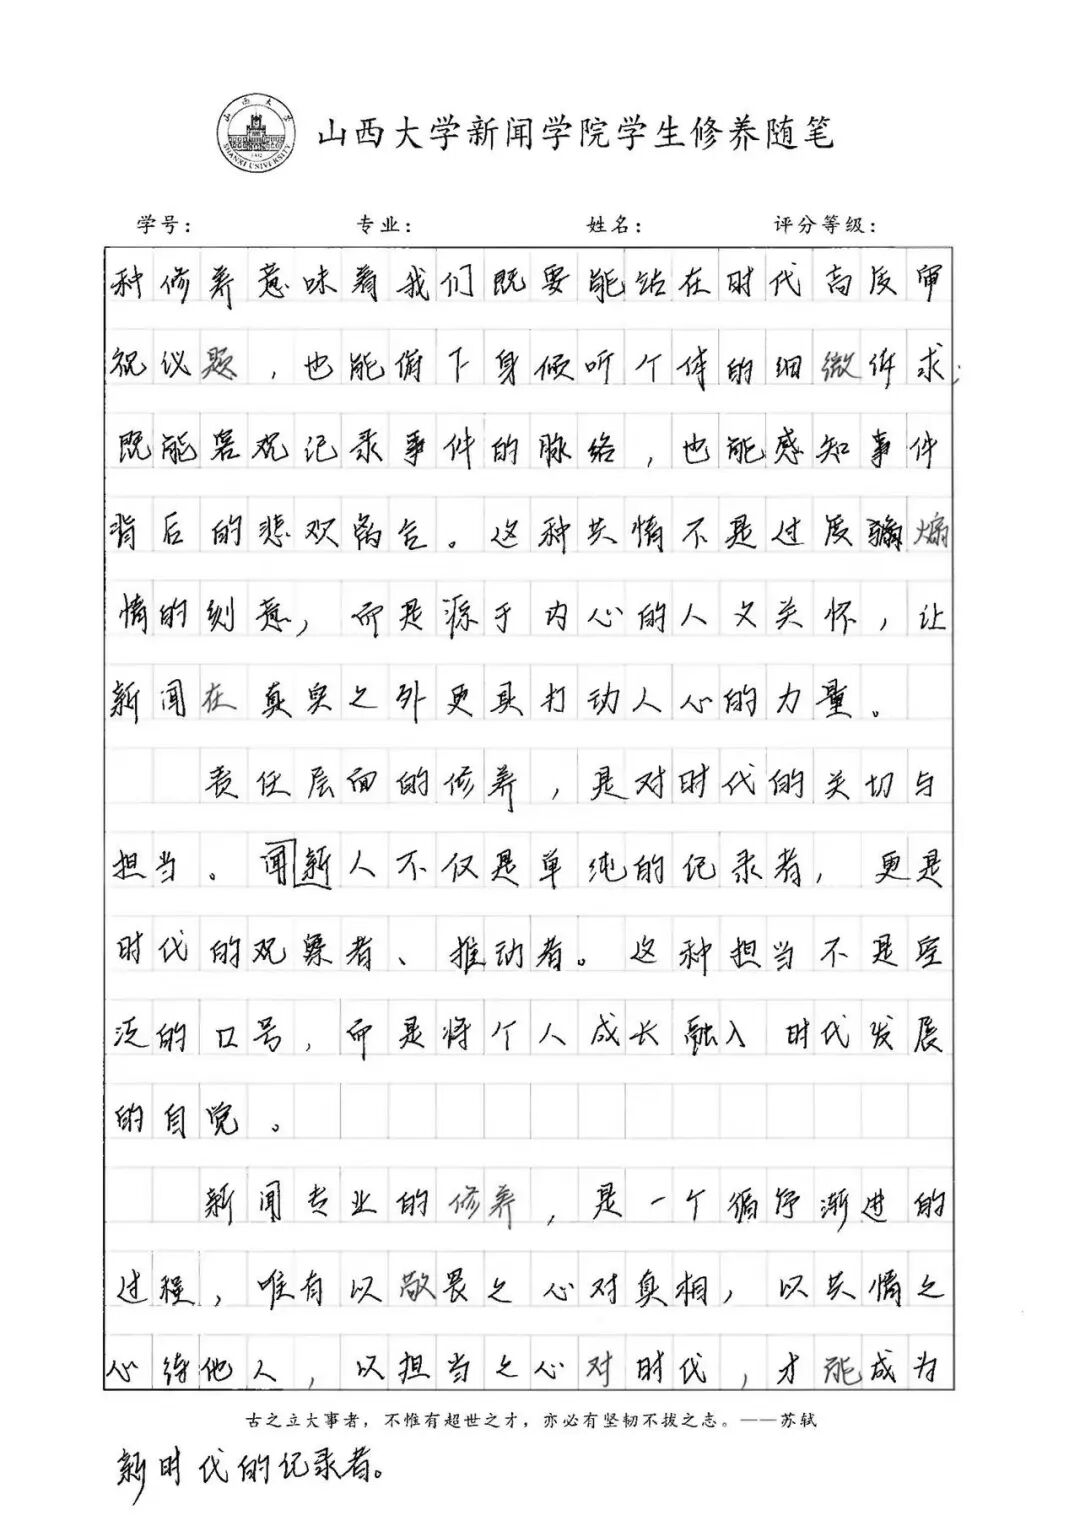 山西大学
SHANXI UNIVERSITY
1902
山西大学新闻学院学生修养随笔
学号： 专业： 姓名： 评分等级：
种修养意味着我们既要能站在时代高度审
视议题，也能俯下身倾听个体的细微诉求；
既能客观记录事件的脉络，也能感知事件
背后的悲欢离合。这种共情不是过度煽
情的刻意，而是源于内心的人文关怀，让
新闻在真实之外更具打动人心的力量。
责任层面的修养，是对时代的关切与
担当。闻新人不仅是单纯的记录者，更是
时代的观察者、推动者。这种担当不是空
泛的口号，而是将个人成长融入时代发展
的自觉。
新闻专业的修养，是一个循序渐进的
过程，唯有以敬畏之心对真相，以共情之
心待他人，以担当之心对时代，才能成为
古之立大事者，不惟有超世之才，亦必有坚韧不拔之志。——苏轼
新时代的记录者。